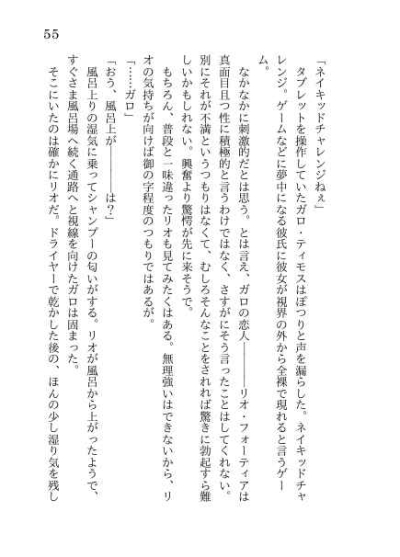 「ネイキッドチャレンジねぇ」
タブレットを操作していたガロ・ティモスはぽつりと声を漏らした。ネイキッドチャ
レンジ。ゲームなどに夢中になる彼氏に彼女が視界の外から全裸で現れると言うゲー
ム。
なかなかに刺激的だとは思う。とは言え、ガロの恋人―――リオ・フォーティアは
真面目且つ性に積極的と言うわけではなく、さすがにそう言ったことはしてくれない。
別にそれが不満というつもりはなくて、むしろそんなことをされれば驚きに勃起すら難
しいかもしれない。興奮より驚愕が先に来そうで。
もちろん、普段と一味違ったリオも見てみたくはある。無理強いはできないから、リ
オの気持ちが向けば御の字程度のつもりではあるが。
「……ガロ」
「おう、風呂上が―――は？」
風呂上りの湿気に乗ってシャンプーの匂いがする。リオが風呂から上がったようで、
すぐさま風呂場へ続く通路へと視線を向けたガロは固まった。
そこにいたのは確かにリオだ。ドライヤーで乾かした後の、ほんの少し湿り気を残し
55